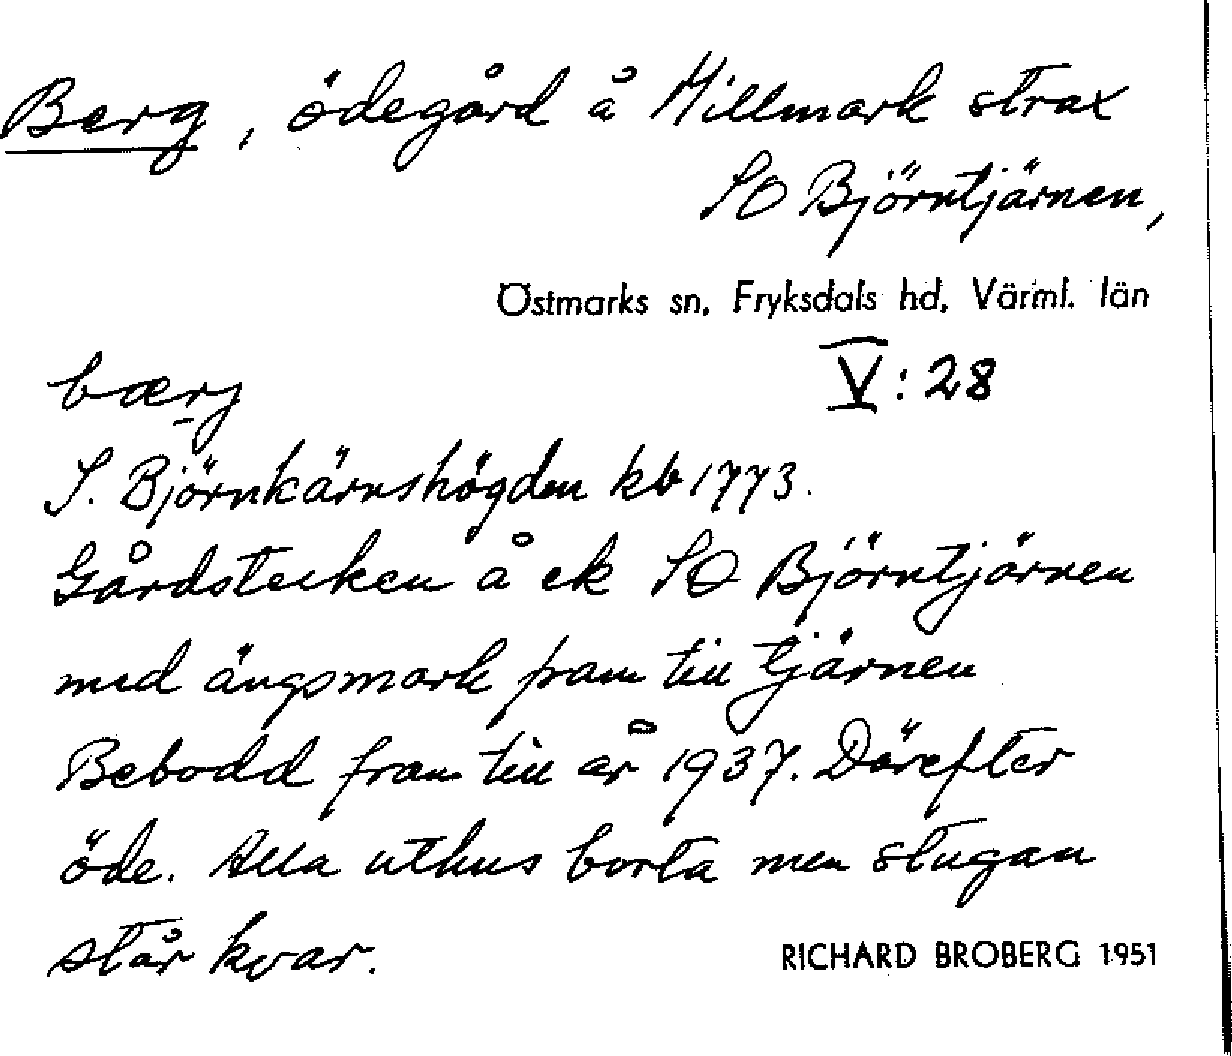 Berg, ödegård å Millmark strax
SO Björntjärnen,
Östmarks sn, Fryksdals hd, Värml. län
bærj
V:28
S. Björnkärnshögden kb 1773.
Gårdstecken å ek SO Björntjärnen
med ängsmark fram till tjärnen
Bebodd fram till år 1937. Därefter
öde. Alla uthus borta men stugan
står kvar.
RICHARD BROBERG 1951